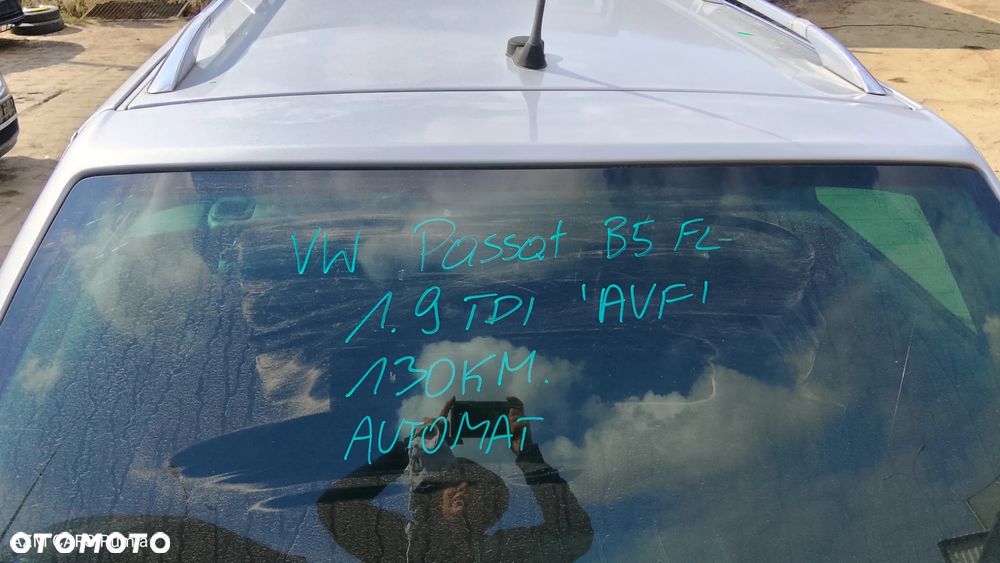 VW Passat B5 FL
1.9 TDI 'AVF'
130KM.
AUTOMAT
OTOMOTO